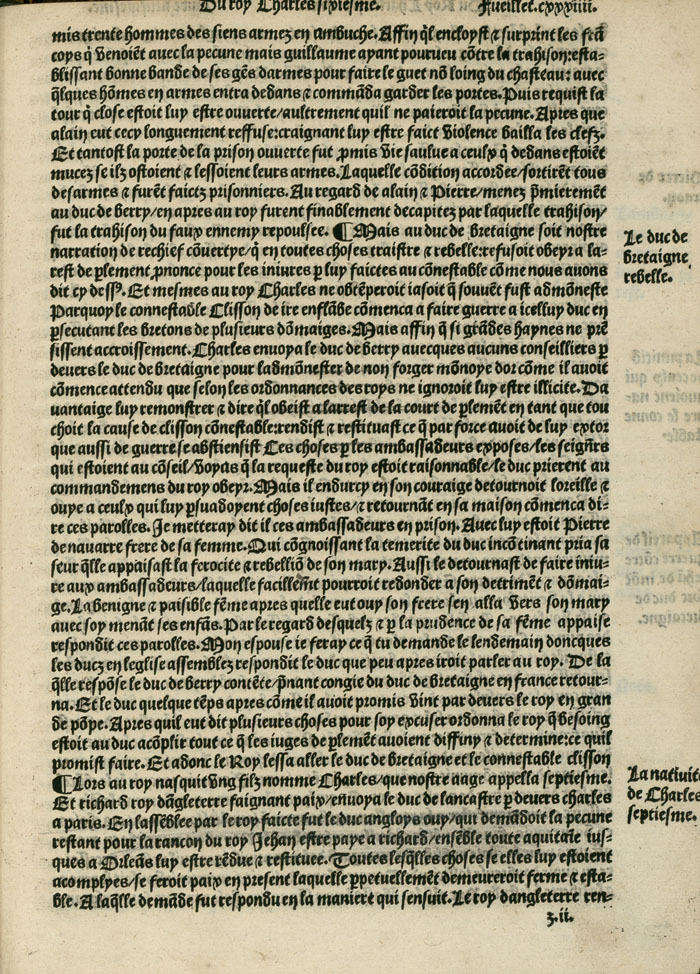 Du roy Charles sixiesme. Fueillet.cxxxiiii.
mis trente hommes des siens armez en ambuche. Affin q̃l encloyst ⁊ surprint les frã
coys q̃ venoiẽt auec la pecune mais guillaume ayant pourueu cõtre la trahison:esta-
blissant bonne bande de ses gẽs darmes pour faire le guet nõ loing du chasteau: auec
q̃lques hõmes en armes entra dedans ⁊ commãda garder les portes. Puis requist la
tour q̃ close estoit luy estre ouuerte/aultrement quil ne paieroit la pecune. Apres que
alain eut cecy longuement reffuse:craignant luy estre faict violence bailla les clefz.
Et tantost la porte de la prison ouuerte fut ꝓmis vie saulue a ceulx q̃ dedans estoiẽt
mucez se ilz ostoient ⁊ lessoient leurs armes. Laquelle cõdition accordee/sortirẽt tous
desarmes ⁊ furẽt faictz prisonniers. Au regard de alain ⁊ Pierre/menez p̃mieremẽt
au duc de berry/en apres au roy furent finablement decapitez par laquelle trahison/
fut la trahison du faux ennemy repoulsee. ¶ Mais au duc de bretaigne soit nostre
narration de rechief cõuertye/q̃ en toutes choses traistre ⁊ rebelle:refusoit obeyr a la-
rest de ꝑlement ꝓnonce pour les iniures ꝑ luy faictes au cõnestable cõme nous auons
dit cy dessꝰ. Et mesmes au roy Charles ne obtẽperoit iasoit q̃ souuẽt fust admõneste
Parquoy le connestable Clisson de ire enflãbe cõmenca a faire guerre a icelluy duc en
ꝑsecutant les bretons de plusieurs dõmaiges. Mais affin q̃ si grãdes haynes ne prẽ
sissent accroissement. Charles enuoya le duc de berry auecques aucuns conseilliers ꝑ
deuers le duc de bretaigne pour ladmõnester de non forger mõnoye dor cõme il auoit
cõmence attendu que selon les ordonnances des roys ne ignoroit luy estre illicite. Da
uantaige luy remonstrer ⁊ dire q̃l obeist a larrest de la court de ꝑlemẽt en tant que tou
choit la cause de clisson cõnestable:rendist ⁊ restituast ce q̃ par force auoit de luy extor
que aussi de guerre se abstiensist Ces choses ꝑ les ambassadeurs exposes/les seignr̃s
qui estoient au cõseil/voyãs q̃ la requeste du roy estoit raisonnable/le duc prierent au
commandemens du roy obeyr. Mais il endurcy en son couraige detournoit loreille ⁊
ouye a ceulx qui luy ꝑsuadoyent choses iustes/⁊ retournãt en sa maison cõmenca di-
re ces parolles. Je metteray dit il ces ambassadeurs en prison. Auec luy estoit Pierre
de nauarre frere de sa femme. Qui cõgnoissant la temerite du duc incõtinant pria sa
seur q̃lle appaisast la ferocite ⁊ rebelliõ de son mary. Aussi le detournast de faire iniu-
re aux ambassadeurs/laquelle facillemẽt pourroit redonder a son detrimẽt ⁊ dõmai-
ge. La benigne ⁊ paisible fẽme apres quelle eut ouy son frere sen alla vers son mary
auec soy menãt ses enfãs. Par le regard desquelz ⁊ ꝑ la prudence de sa fẽme appaise
respondit ces parolles. Mon espouse ie feray ce q̃ tu demande le lendemain doncques
les ducz en leglise assemblez respondit le duc que peu apres iroit parler au roy. De la
q̃lle respõse le duc de berry contẽte/p̃nant congie du duc de bretaigne en france retour-
na. Et le duc quelque tẽps apres cõme il auoit promis vint par deuers le roy en gran
de põpe. Apres quil eut dit plusieurs choses pour soy excuser ordonna le roy q̃ besoing
estoit au duc acõplir tout ce q̃ les iuges de ꝑlemẽt auoient diffiny ⁊ determine:ce quil
promist faire. Et adonc le Roy lessa aller le duc de bretaigne et le connestable clisson
¶ Lors au roy nasquit vng filz nomme Charles/que nostre aage appella septiesme.
Et richard roy dãgleterre faignant paix/enuoya le duc de lancastre ꝑ deuers charles
a paris. En lassẽblee par le roy faicte fut le duc angloys ouy/qui demãdoit la pecune
restant pour la rancon du roy Jehan estre paye a richard/ensẽble toute aquitaĩe ius-
ques a Orleãs luy estre rẽdue ⁊ restituee. Toutes lesq̃lles choses se elles luy estoient
acomplyes/se feroit paix en present laquelle ꝑpetuellemẽt demeureroit ferme ⁊ esta-
ble. A laq̃lle demãde fut respondu en la maniere qui sensuit. Le roy dangleterre ren-
z.ii.
Le duc de
bretaigne
rebelle.
La natiuite
de Charles
septiesme.